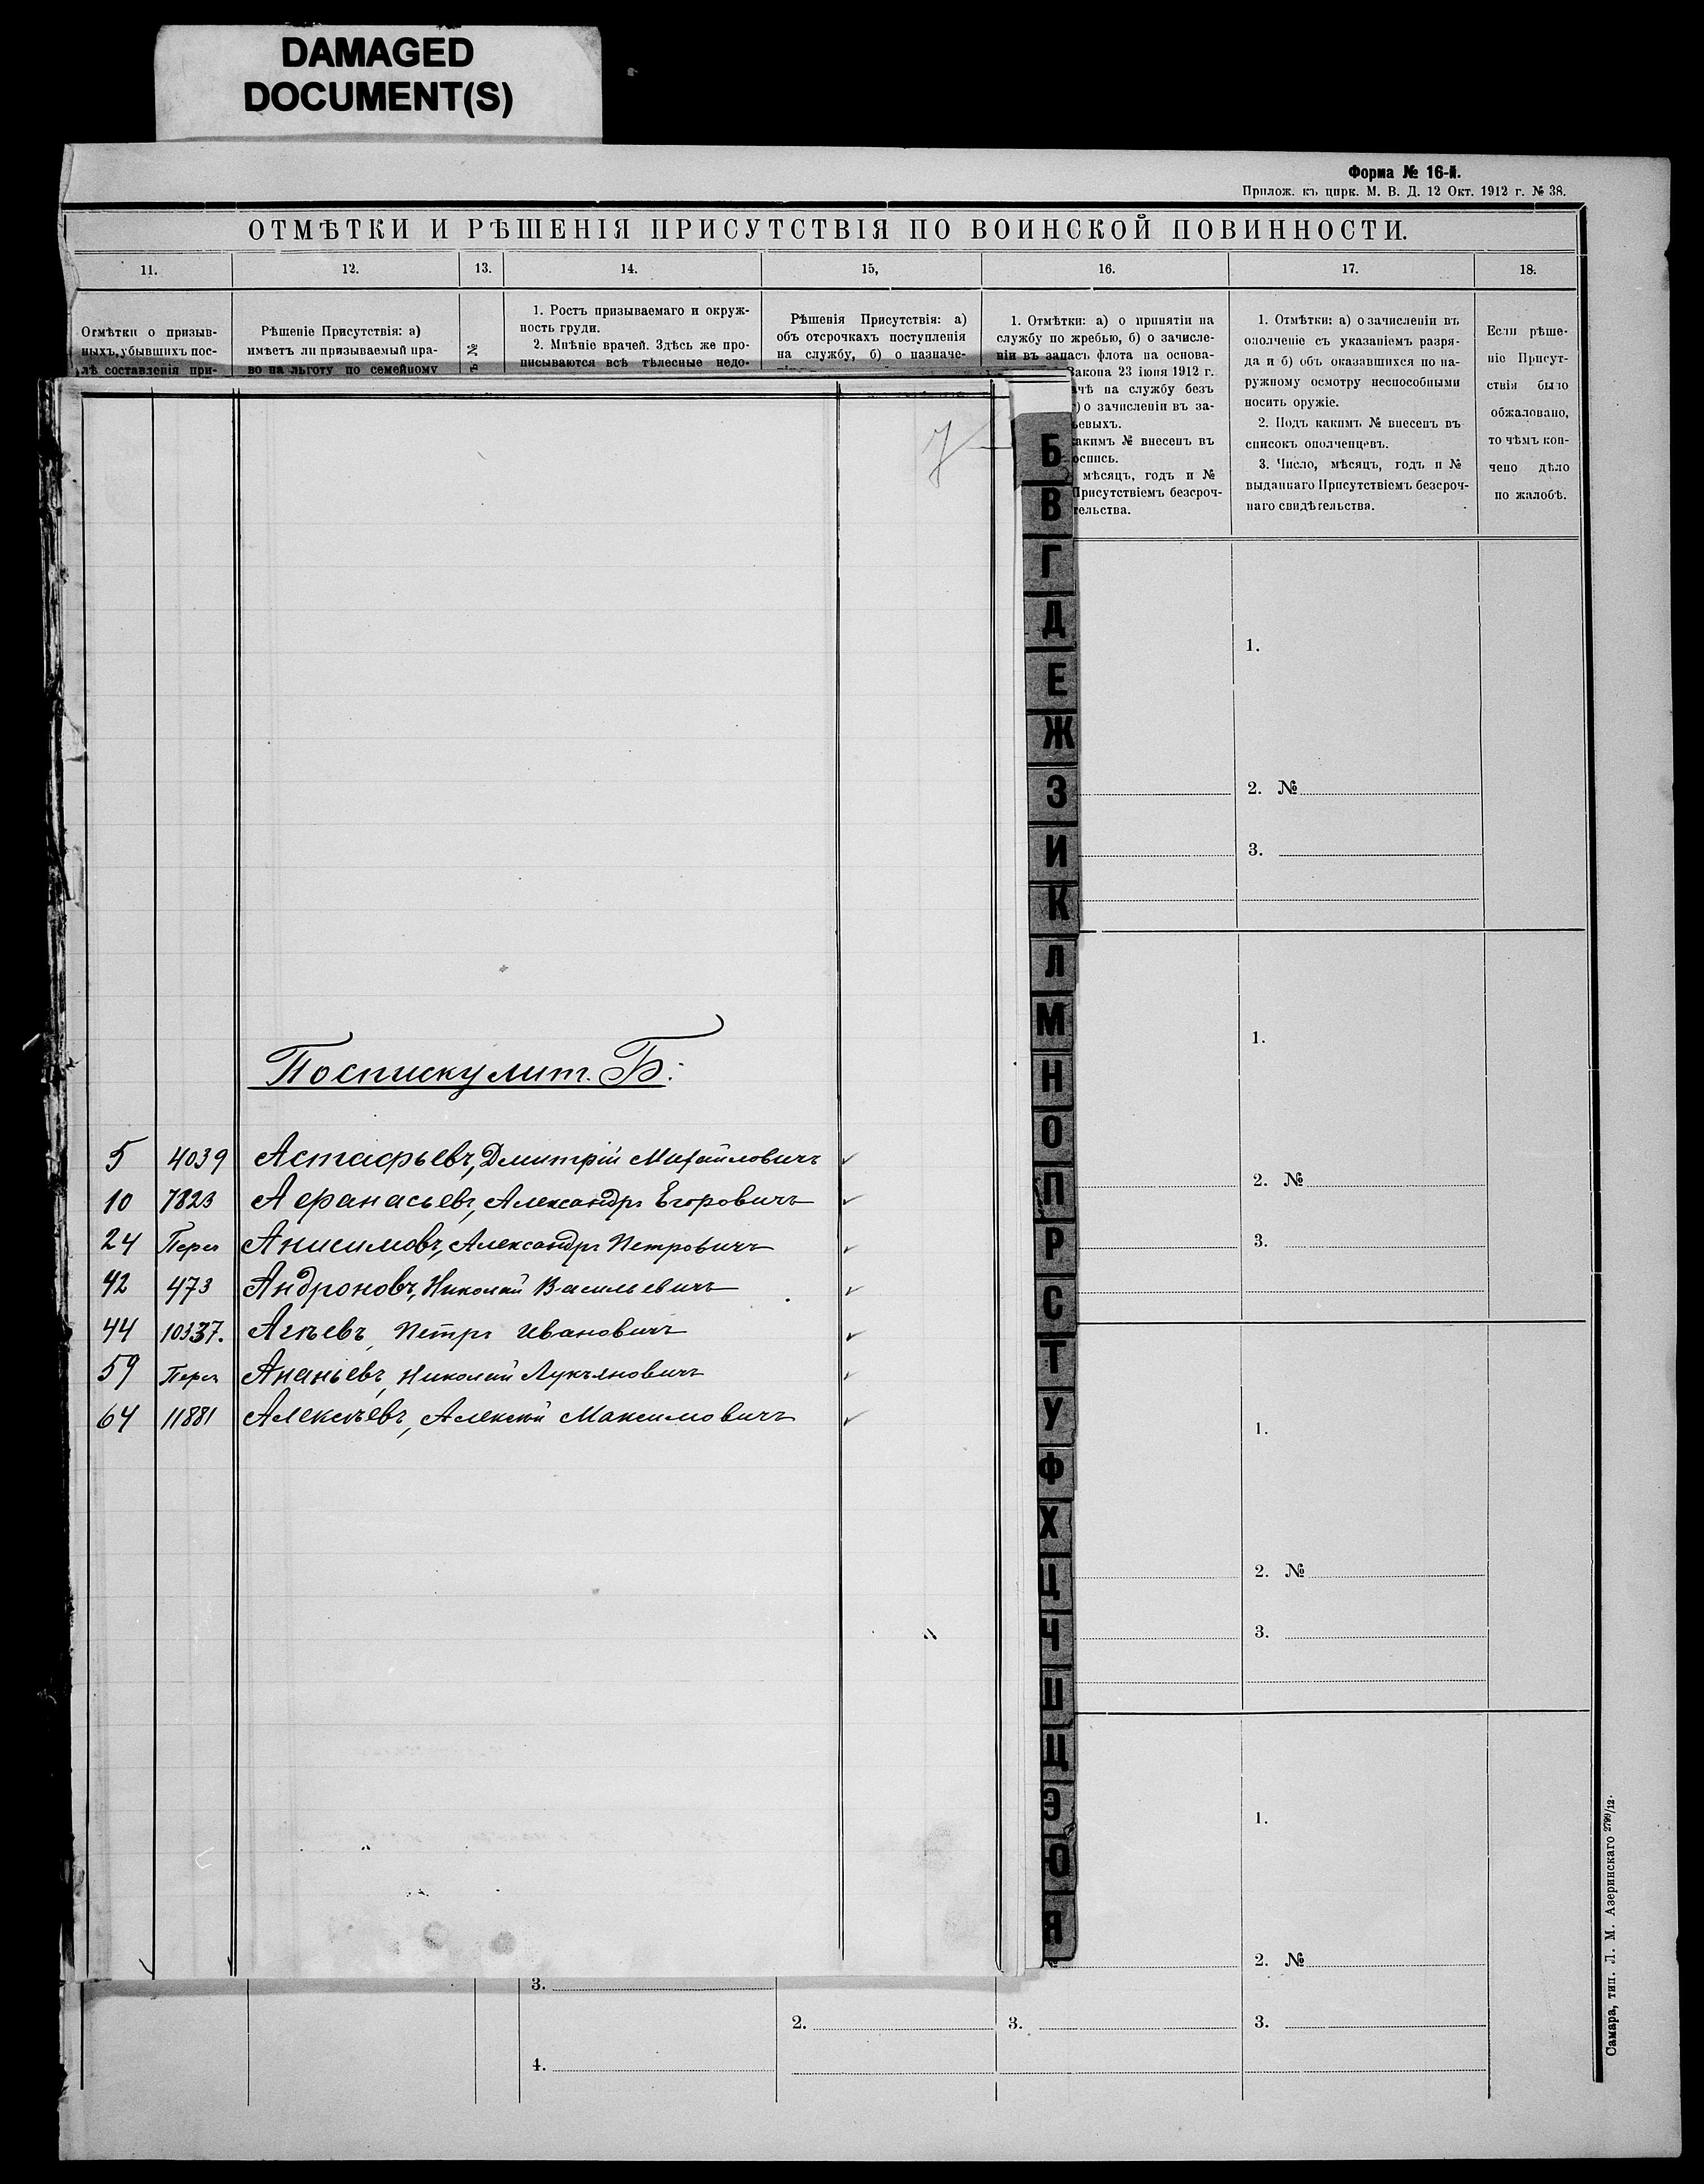 DAMAGED
DOCUMENT(S)
Форма № 16-й.
Прилож. къ цирк. М. В. Д. 12 Окт. 1912 г. № 38.
ОТМѢТКИ И РѢШЕНІЯ ПРИСУТСТВІЯ ПО ВОИНСКОЙ ПОВИННОСТИ.
11. 12. 13. 14. 15, 16. 17. 18.
Отмѣтки о призыв-
ныхъ, убывшихъ пос-
лѣ составленія при-
Рѣшеніе Присутствія: а)
имѣетъ ли призываемый пра-
во на льготу по семейному
№
1. Ростъ призываемаго и окруж-
ность груди.
2. Мнѣніе врачей. Здѣсь же про-
писываются всѣ тѣлесные недо-
Рѣшенія Присутствія: а)
объ отсрочкахъ поступленія
на службу, б) о назначе-
1. Отмѣтки: а) о принятіи на
службу по жребью, б) о зачисле-
ніи въ запасъ флота на основа-
Закона 23 іюня 1912 г.
ачѣ на службу безъ
) о зачисленіи въ за-
евыхъ.
акимъ № внесенъ въ
оспись.
мѣсяцъ, годъ и №
Присутствіемъ безсроч-
тельства.
1. Отмѣтки: а) о зачисленіи въ
ополченіе съ указаніемъ разря-
да и б) объ оказавшихся по на-
ружному осмотру неспособными
носить оружіе.
2. Подъ какимъ № внесенъ въ
списокъ ополченцевъ.
3. Число, мѣсяцъ, годъ и №
выданнаго Присутствіемъ безсроч-
наго свидѣтельства.
Если рѣше-
ніе Присут-
ствія было
обжаловано,
то чѣмъ кон-
чено дѣло
по жалобѣ.
7
По списку лит. Б.
5 4039 Астафьевъ, Дмитрій Михайловичъ
10 7823 Афанасьевъ, Александръ Егоровичъ
24 Пере Анисимовъ, Александръ Петровичъ
42 473 Андроновъ, Николай Васильевичъ
44 10337. Агѣевъ, Петръ Ивановичъ
59 Пере Ананьевъ, Николай Лукьяновичъ
64 11881 Алексѣевъ, Алексѣй Максимовичъ
Б
В
Г
Д
Е
Ж
З
И
К
Л
М
Н
О
П
Р
С
Т
У
Ф
Х
Ц
Ч
Ш
Щ
Э
Ю
Я
1.
2. №
3.
1.
2. №
3.
1.
2. №
3.
1.
2. №
3.
3.
2.
3.
4.
Самара, тип. Л. М. Азеринскаго 2799/12.